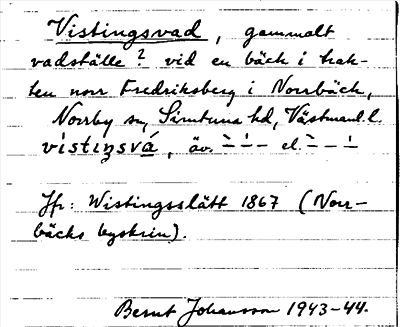 Vistingsvad, gammalt
vadställe? vid en bäck i trak-
ten norr Fredriksberg i Norrbäck,
Norrby sn, Simtuna hd, Västmanl. l.
vístiŋsvá, äv. – ́ – el. – – ́
Jfr: Wistingsslätt 1867 (Norr-
bäcks byskrin).
Bernt Johansson 1943-44.